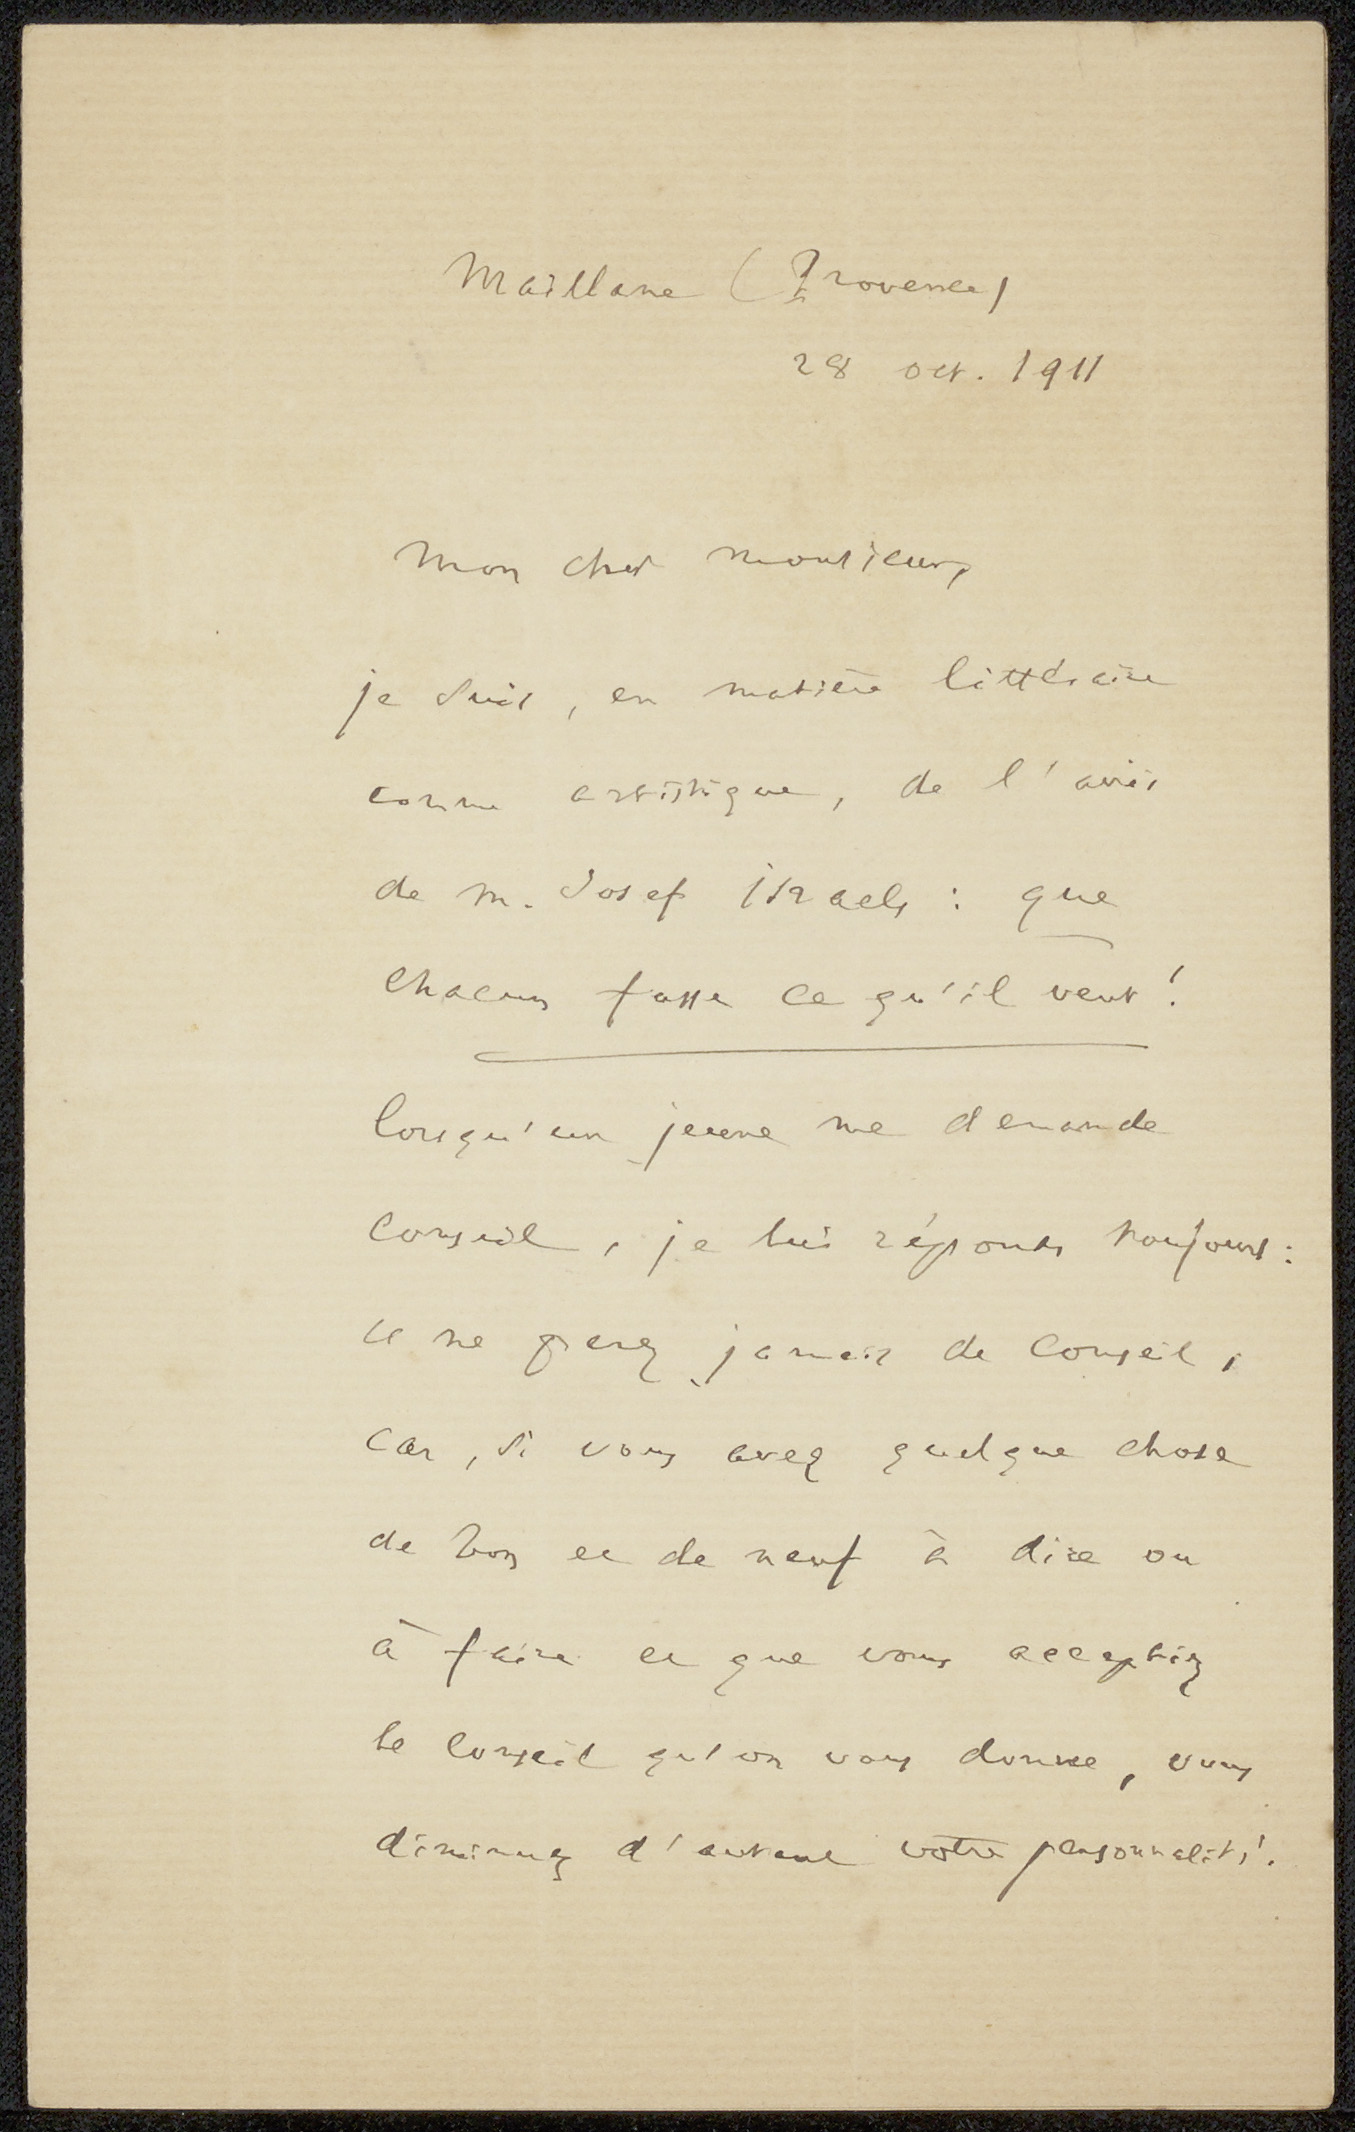 Maillane (Provence)
28 oct. 1911
Mon cher monsieur,
je suis, en matière littéraire
comme artistique, de l'avis
de M. Josef Israels : que
chacun fasse ce qu'il veut !
lorsqu'un jeune me demande
conseil, je lui réponds toujours :
« ne prenez jamais de conseil,
car, si vous avez quelque chose
de bon et de neuf à dire ou
à faire et que vous acceptiez
le conseil qu'on vous donne, vous
diminuez d'autant votre personnalité.